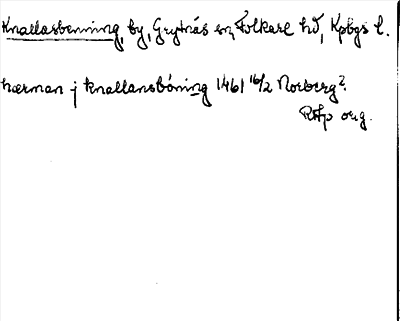 Knallasbenning, by, Grytnäs sn, Folkare hd, Kpbgs l.
hærman j knallansböning 1461 16/2 Norberg?.
RAp orig.